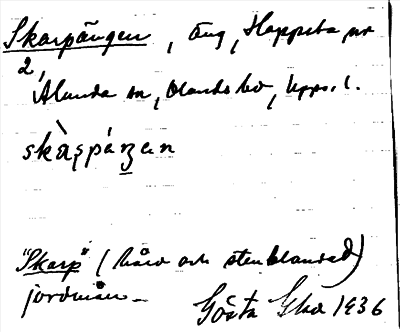 Skarpängen, äng, Hoppsta nr
2,
Ålunda sn, Olands hd, Upps. l.
skàrpáŋen
"Skarp" (hård och stenblandad)
jordmån.
Gösta 1936